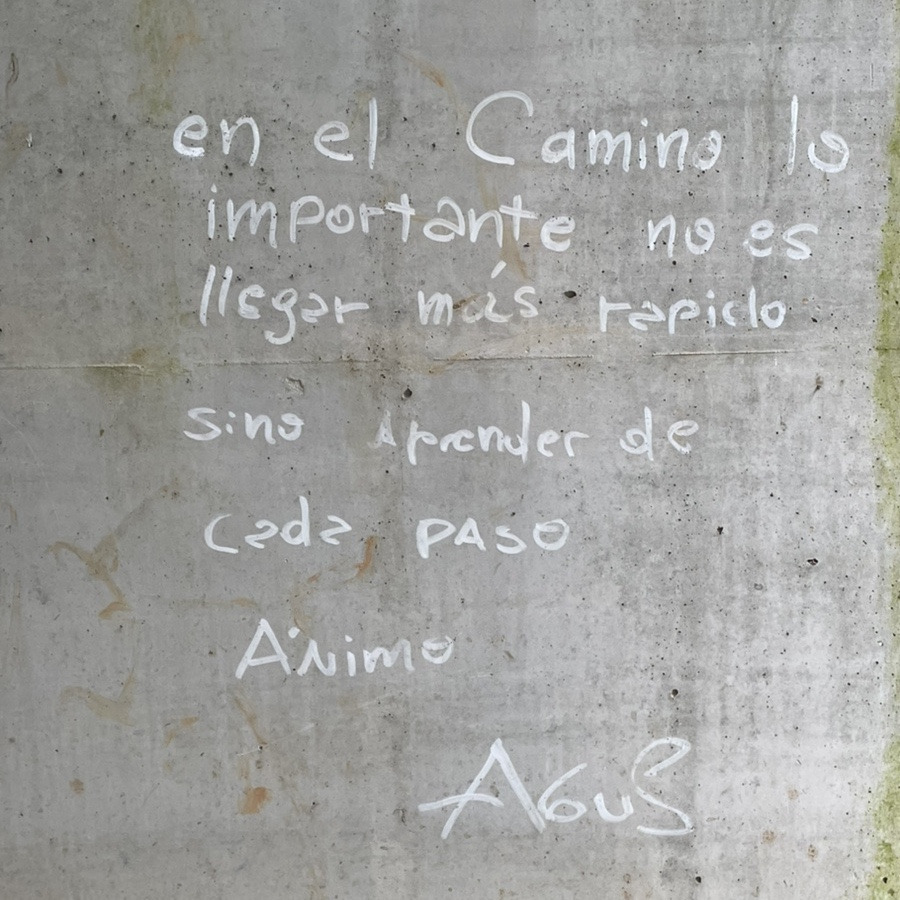 en el Camino lo
importante no es
llegar más rapido
sino Aprender de
cada PASO
Ánimo
AGUS